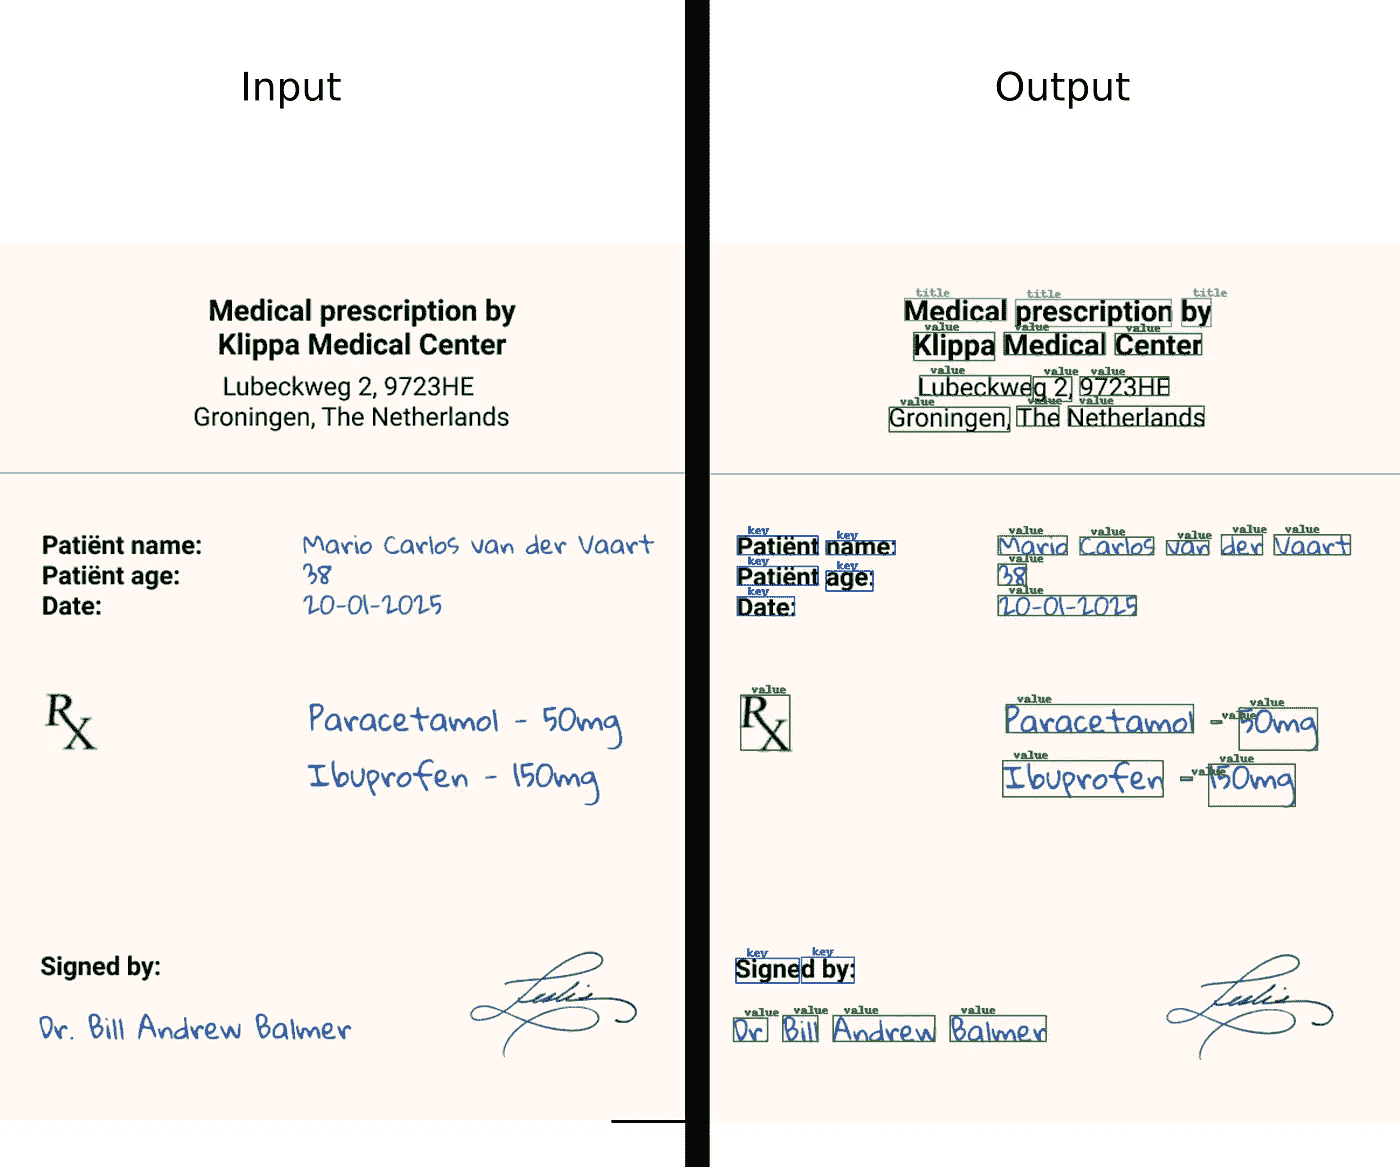 Input
Medical prescription by
Klippa Medical Center
Lubeckweg 2, 9723HE
Groningen, The Netherlands
Patiënt name: Mario Carlos van der Vaart
Patiënt age: 38
Date: 20-01-2025
Rx
Paracetamol - 50mg
Ibuprofen - 150mg
Signed by:
Dr. Bill Andrew Balmer
Leslie
Output
title title title
Medical prescription by
value value value
Klippa Medical Center
value value value
Lubeckweg 2, 9723HE
value value value
Groningen, The Netherlands
key key value value value value value
Patiënt name: Mario Carlos van der Vaart
key key value
Patiënt age: 38
key value
Date: 20-01-2025
value
Rx
value value value
Paracetamol - 50mg
value value value
Ibuprofen - 150mg
key key
Signed by:
value value value value
Dr. Bill Andrew Balmer
Leslie